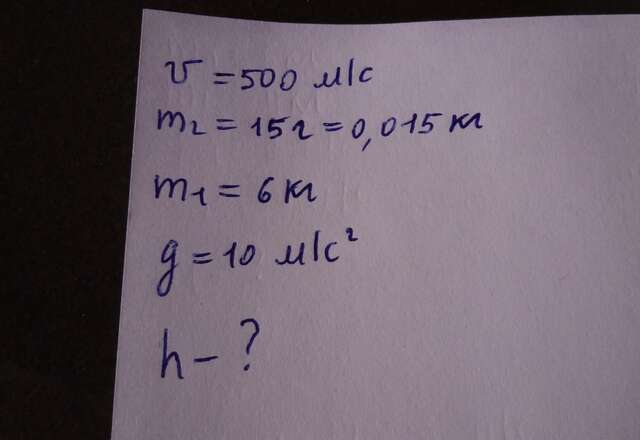 v = 500 м/с
m₂ = 15 г = 0,015 кг
m₁ = 6 кг
g = 10 м/с²
h - ?